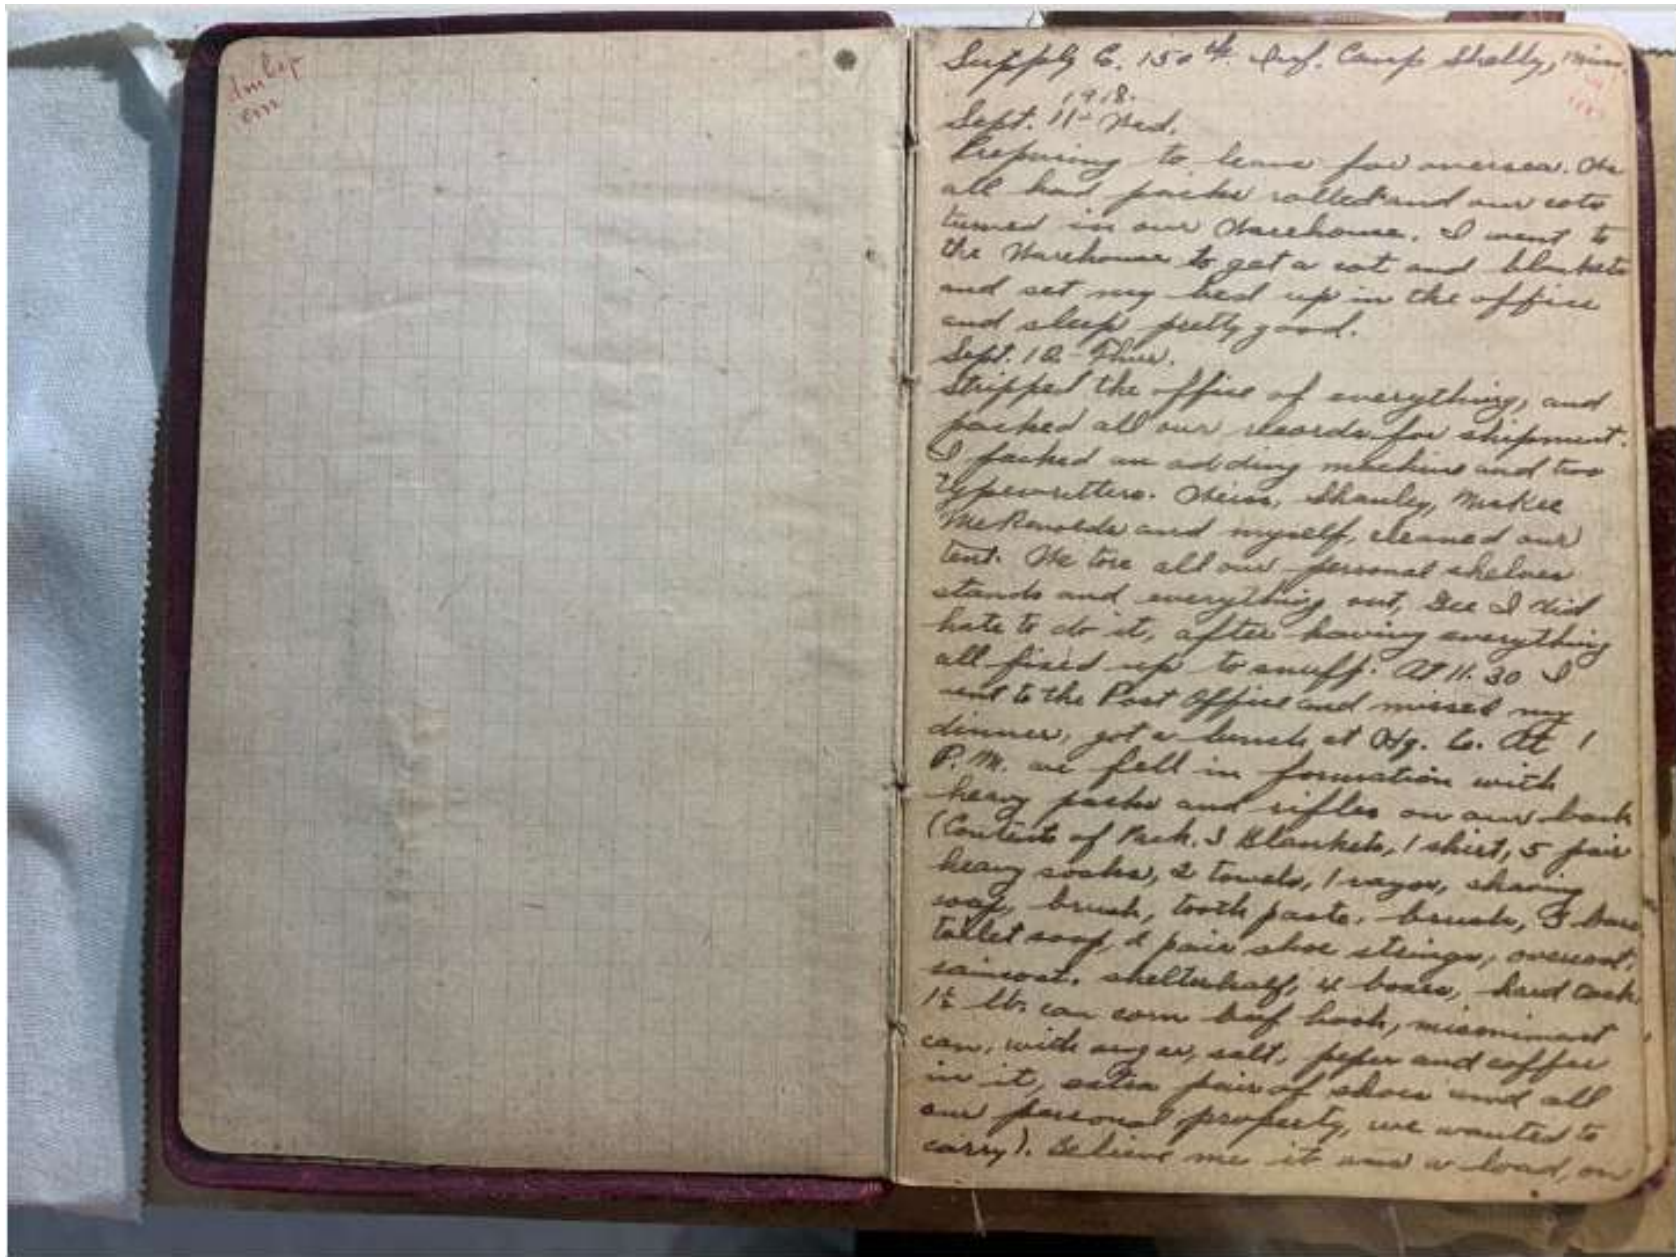 Supply Co. 150th Inf. Camp Shelby, Miss.
1918.
Sept. 11- Wed.
Preparing to leave for oversea. We
all had packs rolled and our cots
turned in our Warehouse. I went to
the Warehouse to get a cot and blankets
and set my bed up in the office
and sleep pretty good.
Sept. 12- Thur.
Stripped the office of everything, and
packed all our records for shipment.
I packed an adding machine and two
typewritters. Weiss, Shanley, McKee
McRenolds and myself, cleaned our
tent. We tore all our personal shelves
stands and everything out, Gee I did
hate to do it, after having everything
all fixed up to snuff. At 11.30 I
went to the Post Office and missed my
dinner, got a lunch at Hq. Co. At 1
P.M. we fell in formation with
heavy packs and rifles on our back
(Contents of Pack. 3 Blankets, 1 shirt, 5 pair
heavy socks, 2 towels, 1 razor, shaving
soap, brush, tooth paste, brush, 3 bars
toilet soap, 2 pair shoe strings, overcoat,
raincoat, shelterhalf, 4 boxes, hard tack
1½ lb. can corn beef hash,
can, with sugar, salt, peper and coffee
in it, extra pair of shoes and all
our personal property, we wanted to
carry). Believe me it was a load, on